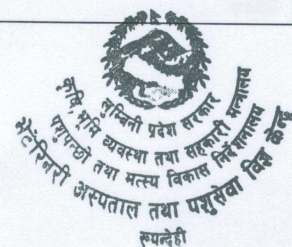 लुम्बिनी प्रदेश सरकार
कृषि भूमि व्यवस्था तथा सहकारी मन्त्रालय
पशुपन्छी तथा मत्स्य विकास निर्देशनालय
भेटेरिनरी अस्पताल तथा पशुसेवा विज्ञ केन्द्र
रूपन्देही